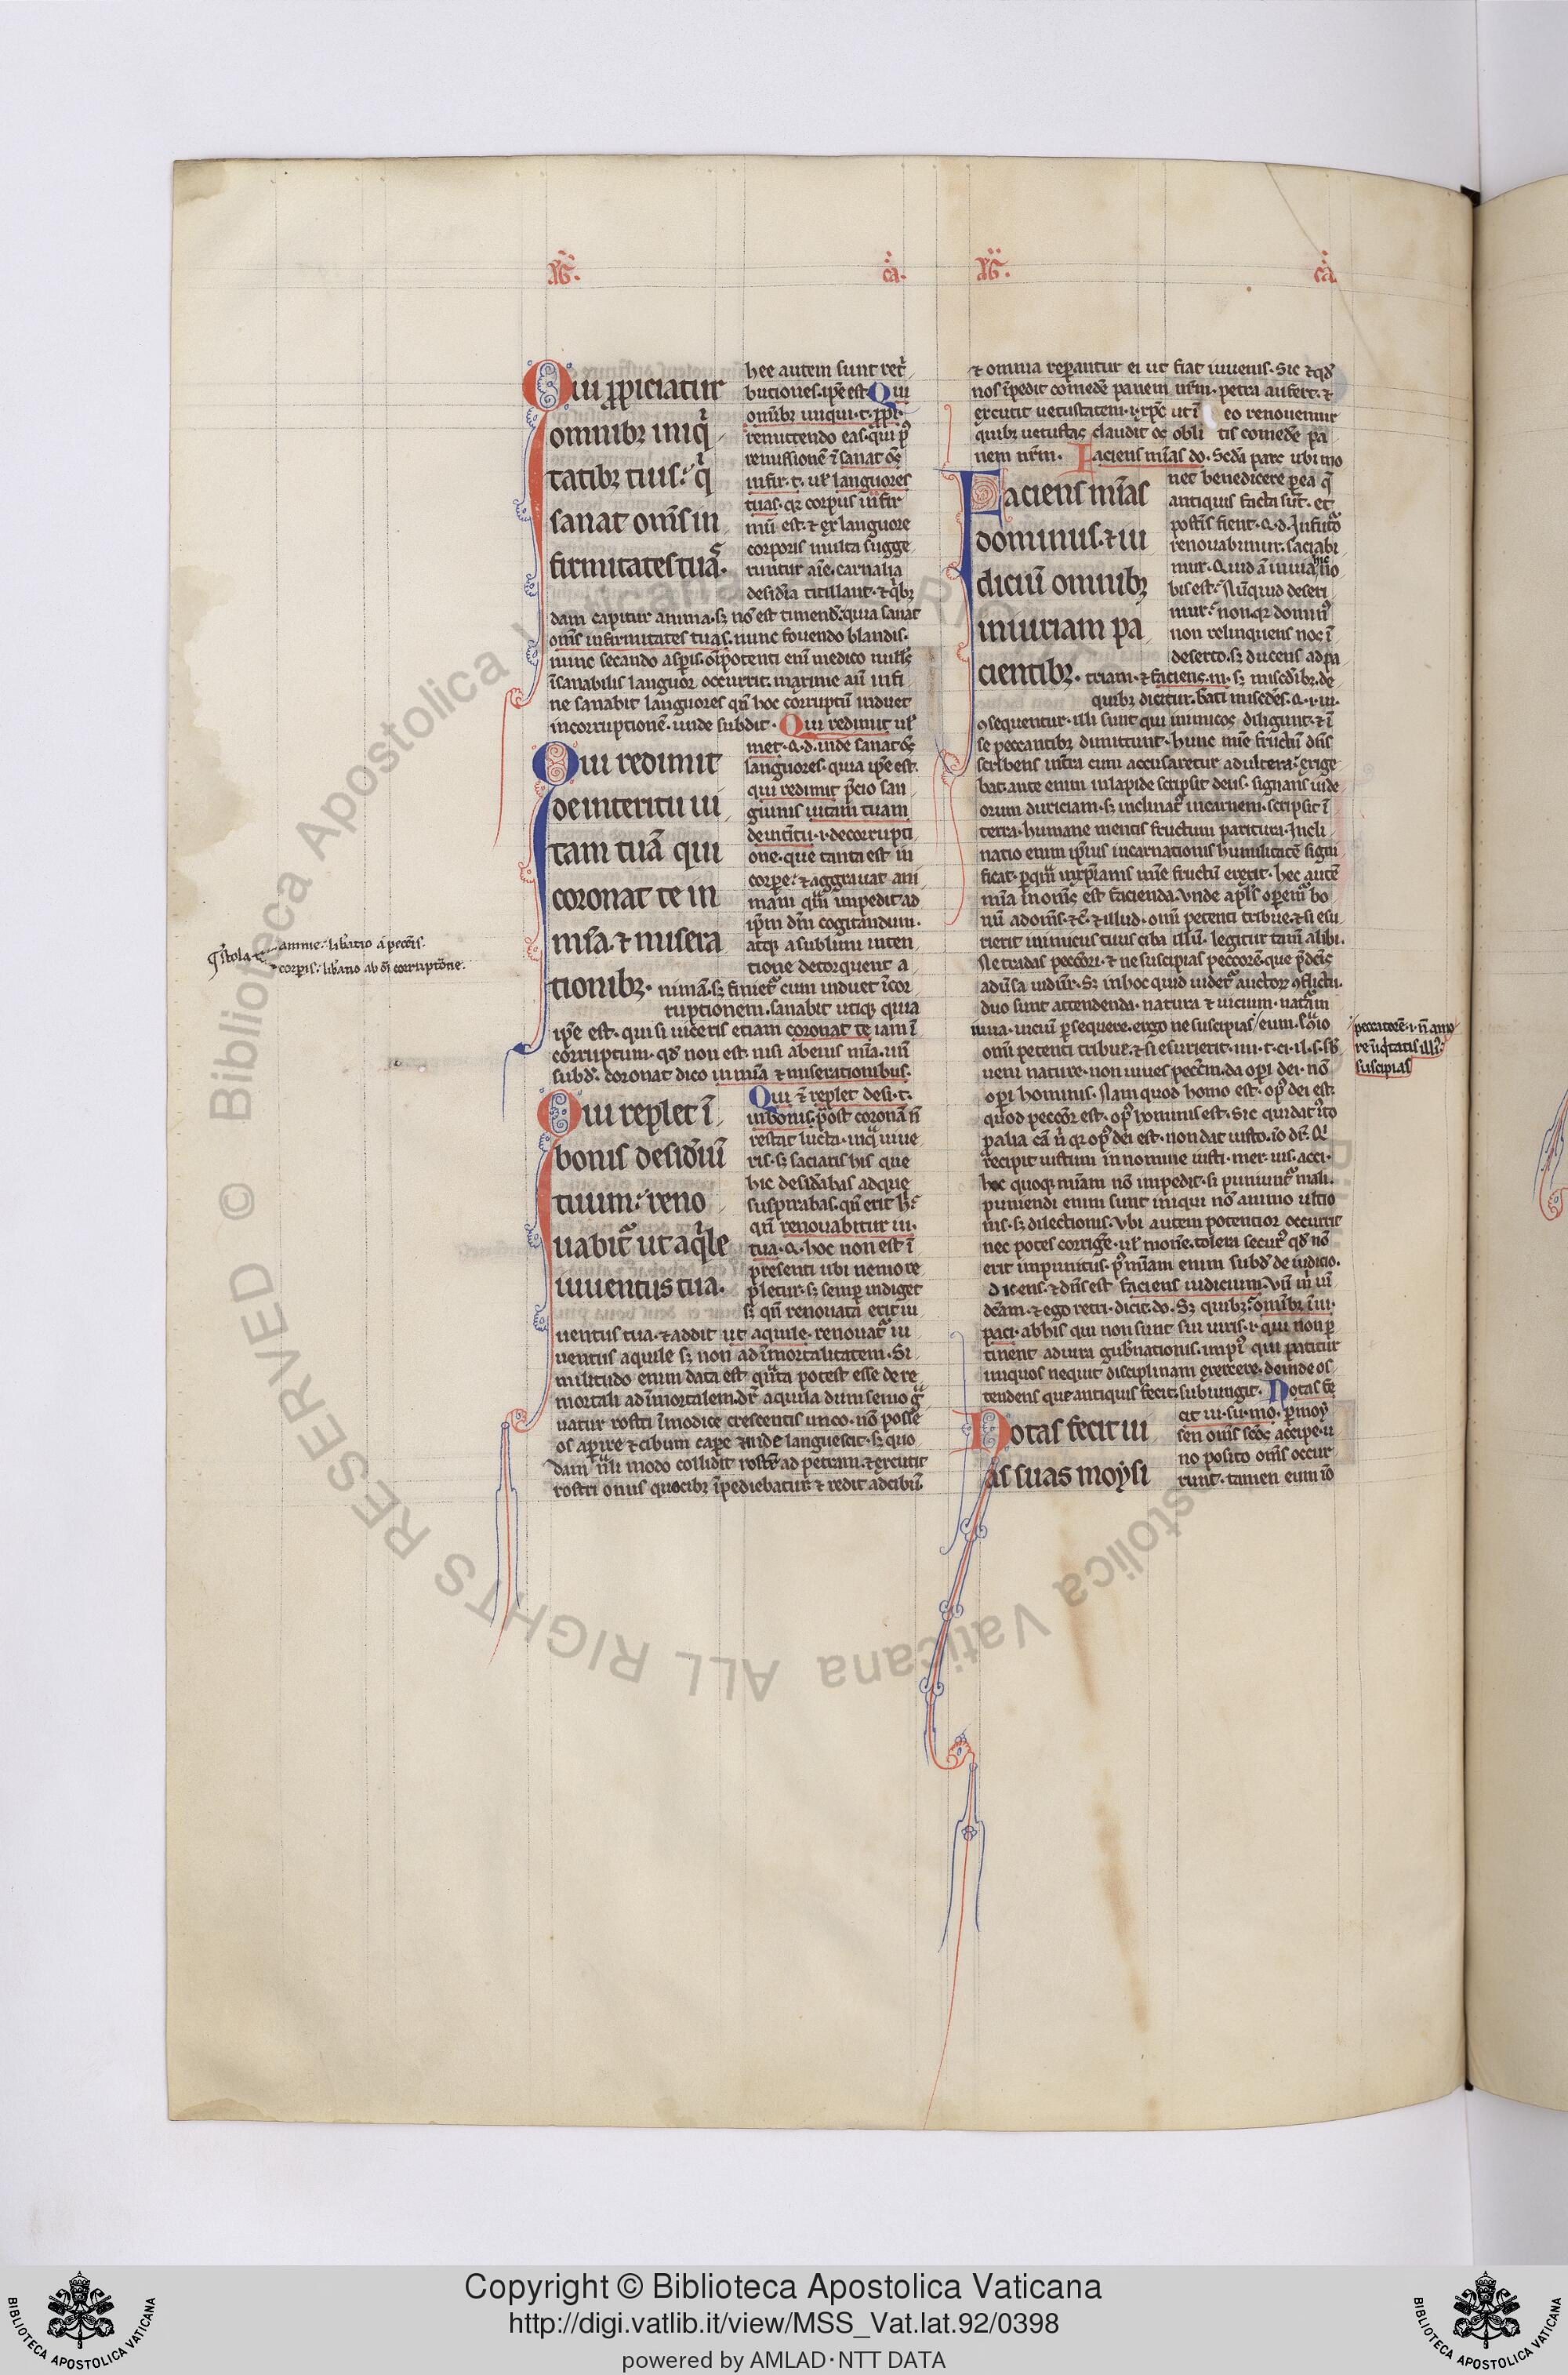 Qui ꝓpiciatur
omnibꝫ iniqͥ
tatibꝫ tuis: qͥ
sanat om̄s in
firmitates tuas.
hee autem sunt retͥ
butiones. ip̄e est Qui
om̄ibꝫ iniqui. t. ꝓpi.
remittendo eas. qui ꝑ
remissionē ī sanat om̄s
infir. t. ul̄ languores
tuas. qꝫ corpus infir
mū est. ⁊ ex languore
corporis multa sugge
runtur aīe. carnalia
desidia titillant. ⁊ qͥbꝫ
dam capitur anima. sꝫ nō est timend. quia sanat
om̄s infirmitates tuas. nunc fouendo blandis.
nunc secando asꝑis. oīpotenti eni medico nullus
īsanabilis languor occurrit. maxime aut̄ in fi
ne sanabit languores qn̄ hoc corruptū induet
incorruptionē. unde subdit. Qui redimit ul̄
Qui redimit
de interitu ui
tam tuā qui
coronat te in
mīa. ⁊ misera
tionibꝫ.
met. q. d. inde sanat om̄s
languores. quia ip̄e est.
qui redimit p̄cio san
guinis uitam tuam
de int̄itu. i. de corrupti
one. que tanta est in
corpe. ⁊ aggrauat ani
mam qm̄ impedit ad
ip̄m dm̄ cogitandum.
atqꝫ a sublimi inten
tione detorquent a
nimā. sꝫ finiet᷑ cum induet īcor
ruptionem. sanabit utiqꝫ quia
ip̄e est. qui si uiceris etiam coronat te iam ī
corruptum. qd̄ non est nisi ab eius mīa. un̄
subd̄. coronat dico in mīa ⁊ miserationibus.
Qui replet ī
bonis desid̄iū
tuum: reno
uabit᷑ ut aqͥle
iuuentus tua.
Qui ⁊ replet desi. t.
in bonis. post coronā n̄
restat lucta. inqͣ uiue
ris. sꝫ saciatis his que
hic desid̄abas adque
suspirabas. qn̄ erit h.
qn̄ renouabitur iu.
tua. q. hoc non est ī
presenti ubi nemo re
pletur. sꝫ semp indiget
sꝫ qn̄ renouata erit iu
uentus tua. ⁊ addit ut aquile. renouat᷑ iu
uentus aquile sꝫ non ad īmortalitatem. Si
militudo enim data est qͣnta potest esse de re
mortali ad īmortalem. dr̄ aquila dum senio gͣ
uatur rostri īmodice crescentis unco. nō posse
os aꝑire ⁊ cibum capere ⁊ inde languescit. sꝫ quo
dam nͣli modo collidit rostr̄ ad petram. ⁊ excutit
rostri onus quo cibꝫ īpediebatur. ⁊ redit ad cibū.
aīmie. lib̄atio a peccīs.
corpis. lib̄atio ab oī corruptōne.
⁊ omnia reparantur ei ut fiat iuuenis. Sic ⁊ qd̄
nos īpedit comedē panem nr̄m. petra aufert. ⁊
excutit uetustatem. i. xp̄c ut ī eo renouemur
quibꝫ uetustas claudit os obli tis comedē pa
nem nr̄m. Faciens mīas do. Scd̄a pars ubi mo
Faciens mīas
dominus. ⁊ iu
diciū omnibꝫ
iniuriam pa
cientibꝫ.
net benedicere ꝑ ea q̄
antiquis facta sūt. et
postīs fient. q. d. In futuro
renouabimur. saciabi
mur. Quid ā in uia hic no
bis est. Nūquid deseri
mur. non. qꝫ dominus
non relinquens nos ī
deserto. sꝫ ducens ad pa
triam. ⁊ faciens. m. sꝫ mised̄ibꝫ. de
quibꝫ dicitur. Bati miseds̄. q. i. m.
ꝯsequentur. illi sunt qui inimicos diligunt. ⁊ ī
se peccantibꝫ dimittunt. hunc mīe fructū dn̄s
scribens int̄ra cum accusaretur adultera. exige
bat. ante enim in lapide scripsit deus. signans iude
orum duriciam. sꝫ inclinatꝰ in carnem. scripsit ī
terra. humane mentis fructum paritura. Incli
natio enim ip̄ius incarnationis humilitatē signi
ficat. ꝑ quā in xp̄ianis mīe fructū exerit. hec autē
mīa in om̄s est facienda. Unde apl̄s opem̄ bo
nū ad om̄s. ⁊ c̄. ⁊ illud. omi petenti tribue. ⁊ si esu
rierit inimicus tuus ciba illū. legitur tam̄ alibi.
Ne tradas peccōri. ⁊ ne suscipias peccorē. que p̄dcīs
adūsa uidn̄r. Sꝫ in hoc quid uidet᷑ auctorꝫ ꝯflictu.
duo sunt attendenda. natura ⁊ uicium. natam
iuua. uiciū ꝑsequere. ergo ne suscipias eum. sꝫ io
omi petenti tribue. ⁊ si esurierit. ini. t. ci. il. s. sb
ueni nature. non iuues pecc̄m. da opi dei. nō
opi hominis. Nam quod homo est. opꝰ dei est.
quod peccōr est. opꝰ hominis est. Sic qui dat īto
palia cā n̄ qꝫ opꝰ dei est. non dat iusto. io dr̄. Qͥ
recipit iustum in nomine iusti. mer. ius. acci.
hoc quoqꝫ mīam nō impedit. si puniunt᷑ mali.
puniendi enim sunt iniqui nō animo ultio
nis. sꝫ dilectionis. Ubi autem potentior occurrit
nec potes corrigē. ul̄ monē. tolera securꝰ qd̄ nō
erit impunitus. p̄ mīam enim subd̄ de iudicio.
dicens. ⁊ dn̄s est faciens iudicium. Un̄ m̄ ui
dc̄am. ⁊ ego retri. dicit. do. Sꝫ quibꝫ. om̄ibꝫ īiu.
paci. ab his qui non sunt sui iuris. i. qui non ꝑ
tinent ad iura gub̄nationis. impiꝰ qui patitur
iniquos nequit disciplinam exercere. deinde os
tendens que antiquis fecit. subiungit. Notas fe
Notas fecit ui
as suas moysi
cit ui. su. mo. ꝑ moy
sen om̄s sc̄os accipe. u
no posito om̄s occur
runt. tamen eum io
peccatorē. i. n̄ amo
re īiqͥtatis illꝰ
suscipias
BIBLIOTECA APOSTOLICA VATICANA
Copyright © Biblioteca Apostolica Vaticana
http://digi.vatlib.it/view/MSS_Vat.lat.92/0398
powered by AMLAD·NTT DATA
BIBLIOTECA APOSTOLICA VATICANA
© Biblioteca Apostolica Vaticana ALL RIGHTS RESERVED